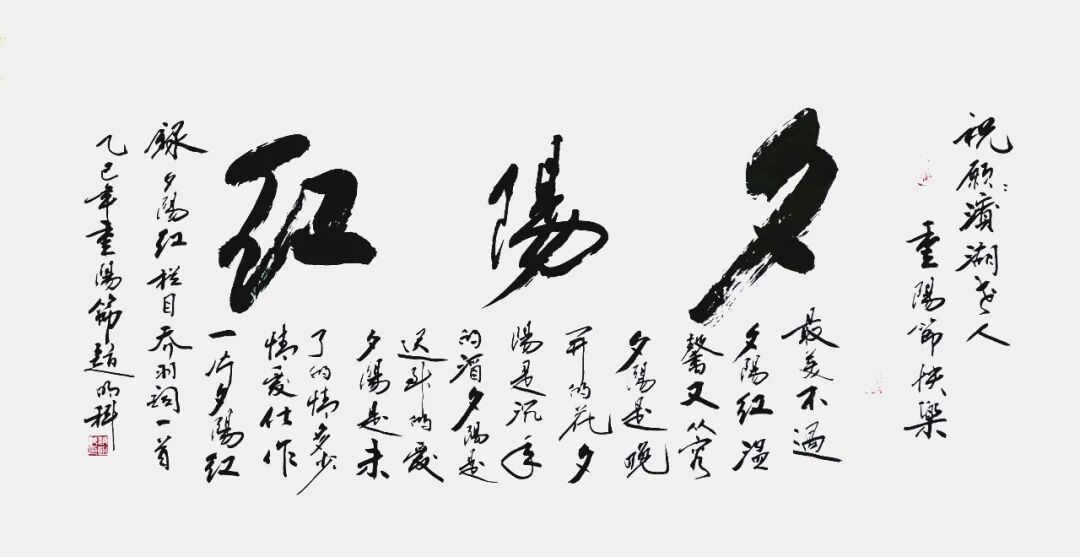 祝願:濱湖老人
重陽節快樂
夕陽红
最美不過
夕陽红温
馨又从容
夕陽是晚
开的花夕
陽是沉年
的酒夕陽是
迟到的爱
夕陽是未
了的情多少
情爱化作
一片夕陽红
錄夕陽红栏目乔羽词一首
乙巳年重陽節趙明科